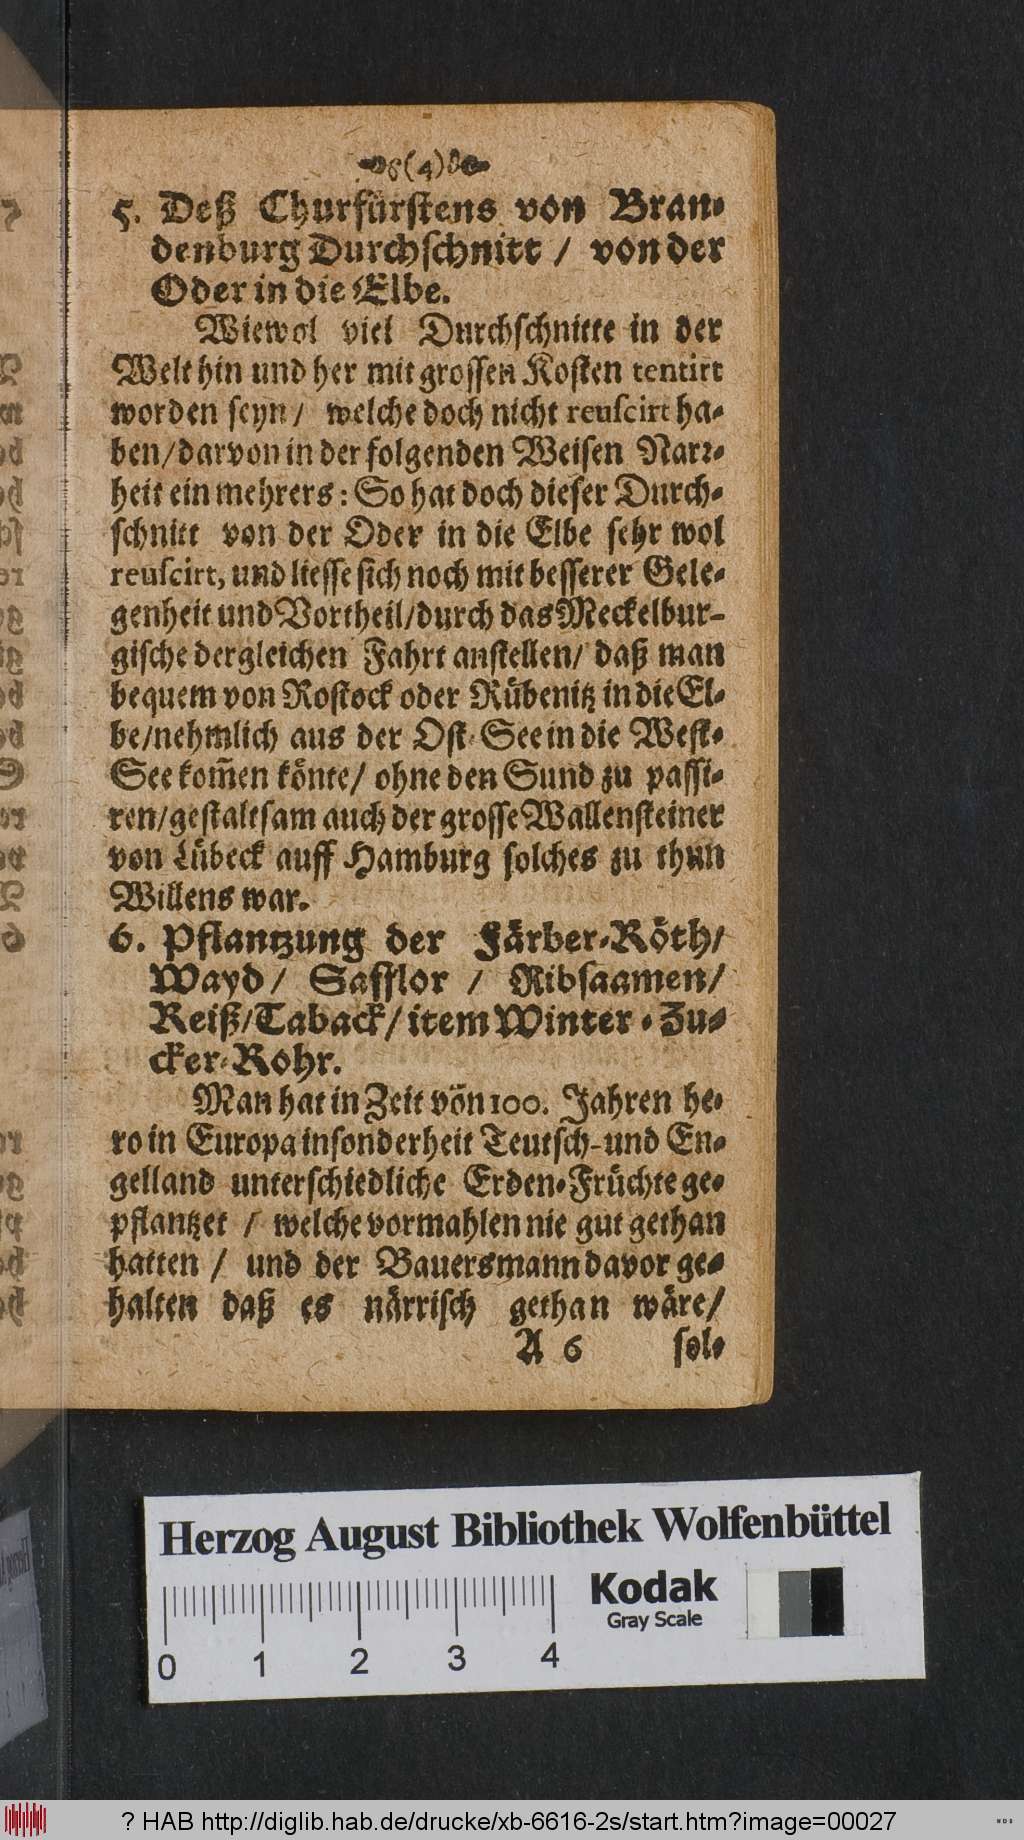 (4)
5. Deß Churfürstens von Bran-
denburg Durchschnitt / von der
Oder in die Elbe.
Wiewol viel Durchschnitte in der
Welt hin und her mit grossen Kosten tentirt
worden seyn / welche doch nicht reuscirt ha-
ben/darvon in der folgenden Weisen Narr-
heit ein mehrers: So hat doch dieser Durch-
schnitt von der Oder in die Elbe sehr wol
reuscirt, und liesse sich noch mit besserer Gele-
genheit und Vortheil/durch das Meckelbur-
gische dergleichen Fahrt anstellen/ daß man
bequem von Rostock oder Rübenitz in die El-
be/nehmlich aus der Ost-See in die West-
See kom̃en könte/ ohne den Sund zu passi-
ren/gestaltsam auch der grosse Wallensteiner
von Lübeck auff Hamburg solches zu thun
Willens war.
6. Pflantzung der Färber-Röth/
Wayd / Safflor / Ribsaamen/
Reiß/Taback/item Winter-Zu-
cker-Rohr.
Man hat in Zeit von 100. Jahren he-
ro in Europa insonderheit Teutsch-und En-
gelland unterschiedliche Erden-Früchte ge-
pflantzet / welche vormahlen nie gut gethan
hatten / und der Bauersmann davor ge-
halten daß es närrisch gethan wäre/
A 6 sol-
Herzog August Bibliothek Wolfenbüttel
Kodak
Gray Scale
0 1 2 3 4
? HAB http://diglib.hab.de/drucke/xb-6616-2s/start.htm?image=00027